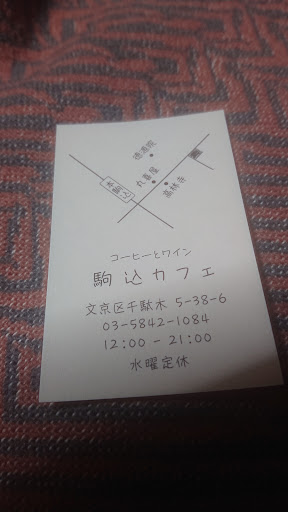 徳源院
丸喜屋
高林寺
本駒込
コーヒーとワイン
駒込カフェ
文京区千駄木 5-38-6
03-5842-1084
12:00 - 21:00
水曜定休